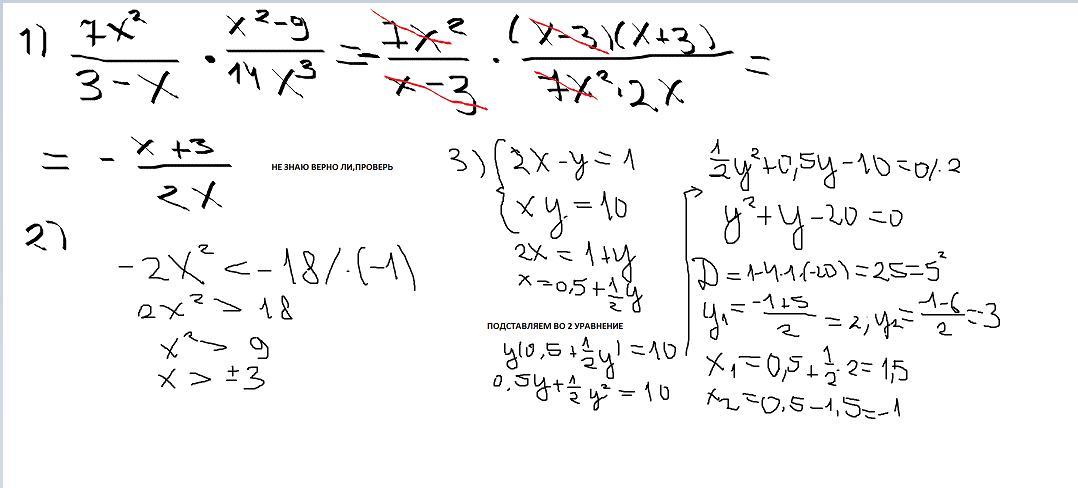 1) 7x²/(3-x) · (x²-9)/(14x³) = -7x²/(x-3) · ((x-3)(x+3))/(7x²·2x) =
= - (x+3)/(2x)
НЕ ЗНАЮ ВЕРНО ЛИ,ПРОВЕРЬ
2)
-2x² < -18 /·(-1)
2x² > 18
x² > 9
x > ±3
3) { 2x-y=1
xy=10
2x = 1+y
x=0,5+½y
ПОДСТАВЛЯЕМ ВО 2 УРАВНЕНИЕ
y(0,5+½y)=10
0,5y+½y²=10
½y²+0,5y-10=0/·2
y²+y-20=0
D=1-4·1·(-20)=25=5²
y₁=(-1+5)/2=2; y₂=(-1-6)/2=-3
x₁=0,5+½·2=1,5
x₂=0,5-1,5=-1